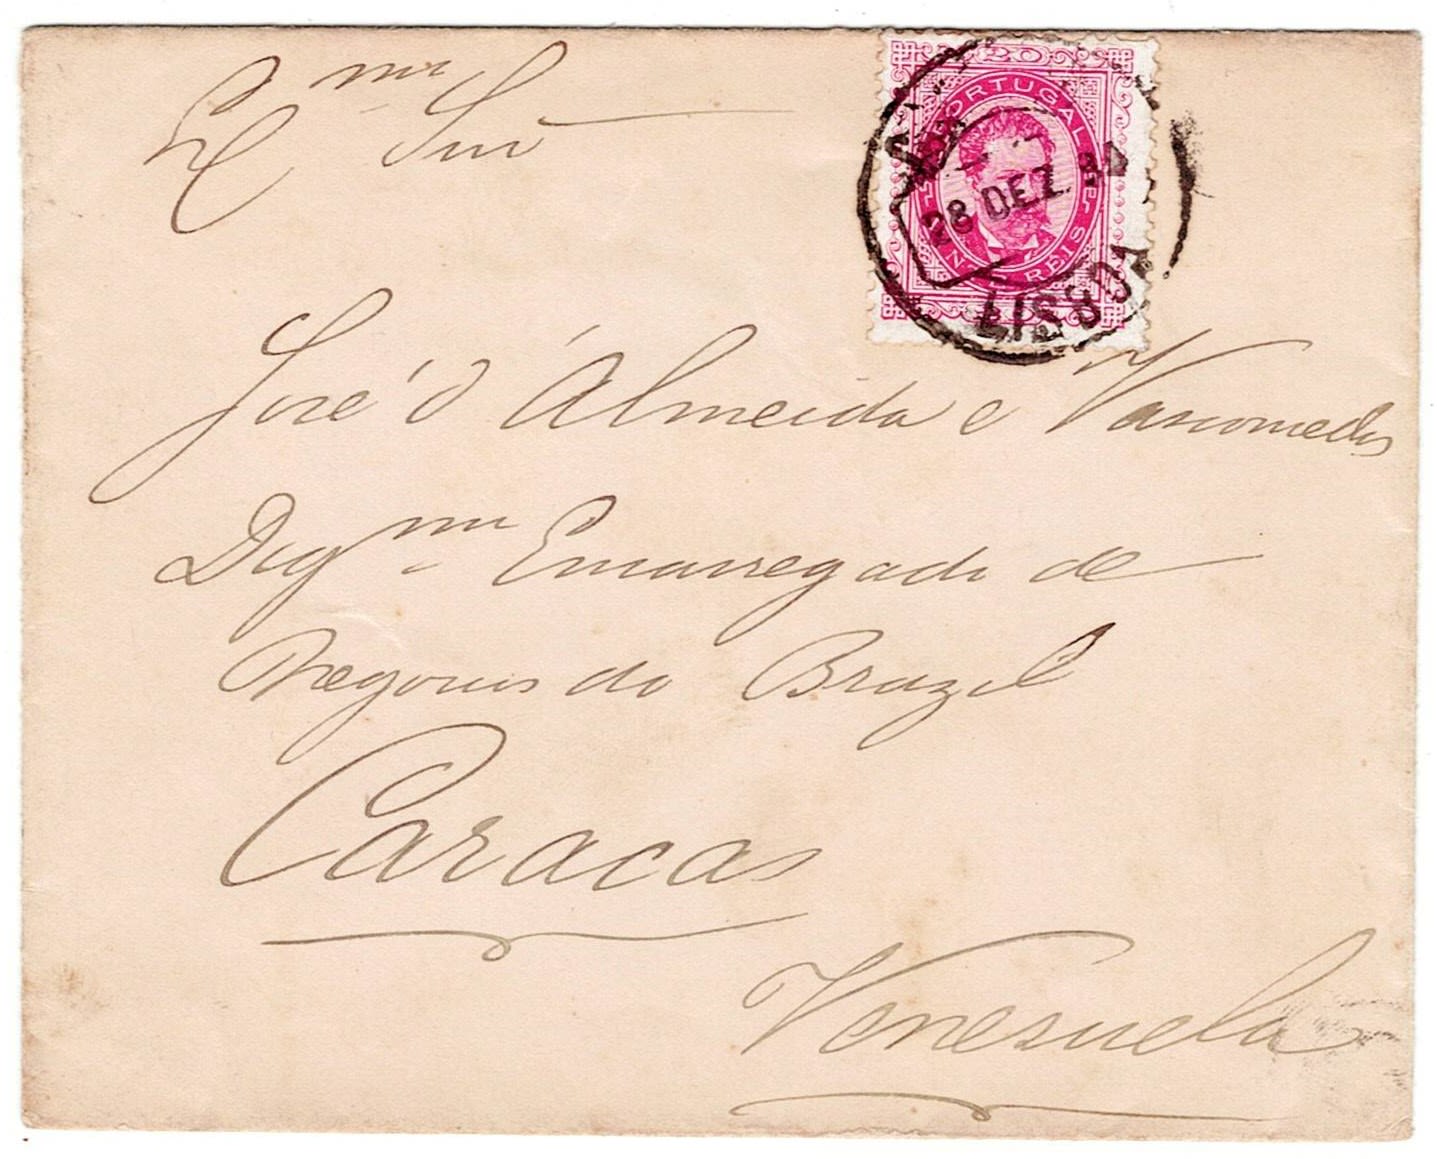 Ex.mo Snr
José d'Almeida e Vasconcellos
Dig.mo Encarregado de
Negocios do Brazil
Caracas
Venesuela
20
PORTUGAL
REIS
28 DEZ
LISBOA